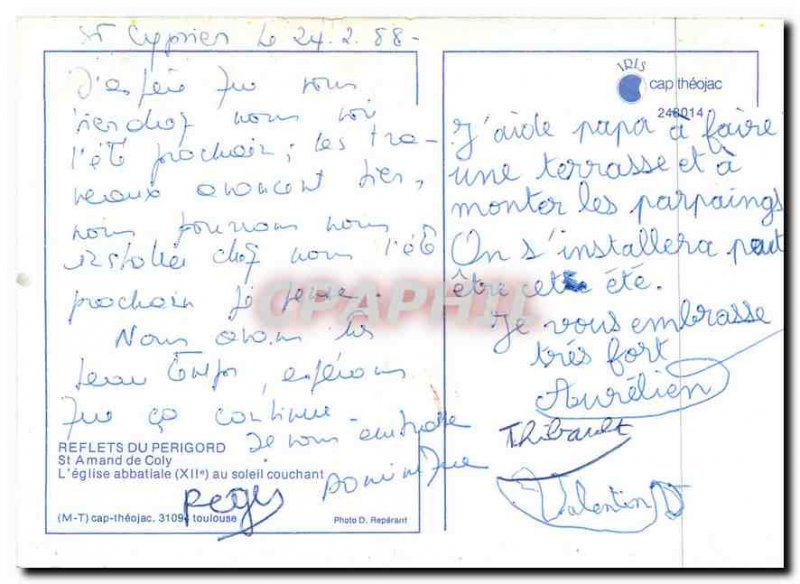 St Cyprien Le 24.2.88-
J'espère que vous
viendrez nous voir
l'été prochain; les tra-
veaux avancent bien,
nous pourrons nous
installer chez nous l'été
prochain je pense.
Nous avons très
beau temps, espérons
que ça continue.
Je vous embrasse
Dominique
REFLETS DU PERIGORD
St Amand de Coly
L'église abbatiale (XIIe) au soleil couchant
Regis
(M-T) cap-théojac. 3109 toulouse
Photo D. Repérant
IRIS
cap théojac
240014
J'aide papa à faire
une terrasse et à
monter les parpaings
On s'installera peut
être cet été.
Je vous embrasse
très fort
Aurélien
Thibault
Valentin D
CPAPHIL